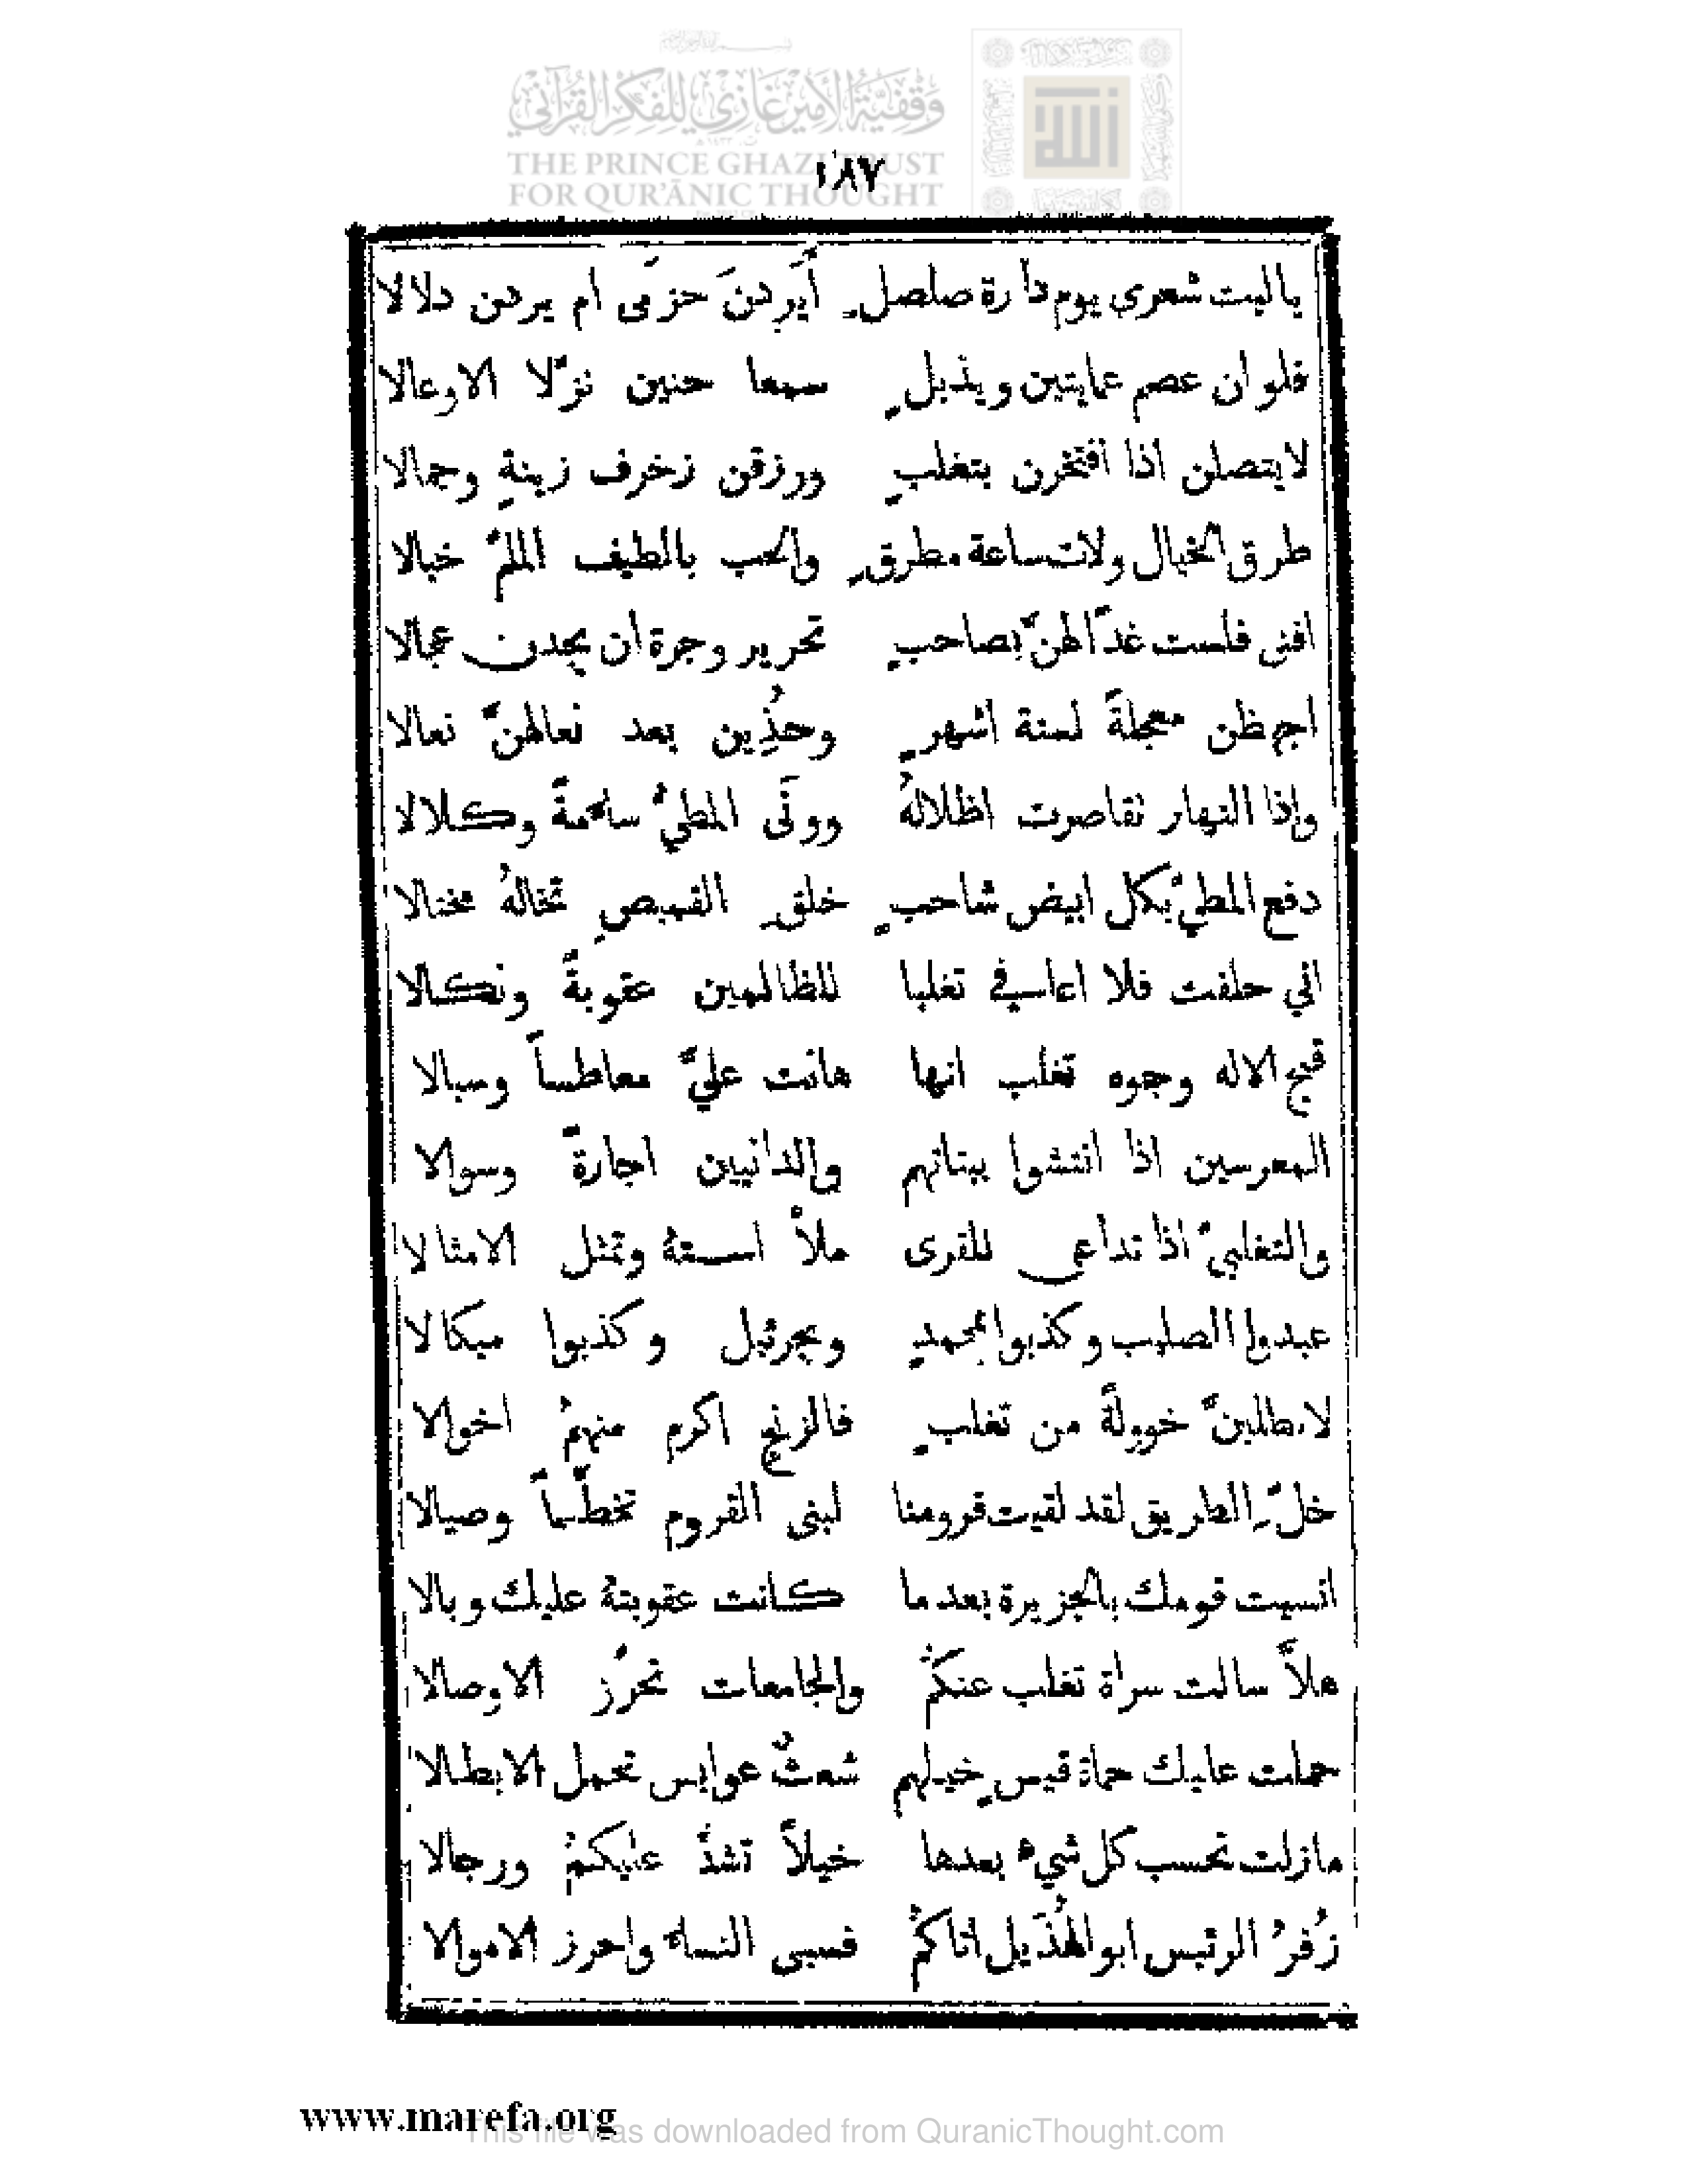 وقفية الأمير غازي للفكر القرآني
THE PRINCE GHAZI TRUST
FOR QUR'ĀNIC THOUGHT
١٨٧
ياليت شعرى يوم دارة صلصلٍ أَيَرِدنَ حزمَى ام يردن دلالا
فلو ان عصم عمايتين ويذبلٍ سمعا حنين نزّلا الاوعالا
لايتصلن اذا افتخرن بتغلبٍ ورزقن زخرف زينةٍ وجمالا
طرق الخيال ولات ساعة مطرقٍ والحب بالطيف الملمّ خيالا
افنى فلست غدًا لهنّ بصاحبٍ تحرير وجرة ان يجدن عجالا
اجهظن معجلةً لستة اشهرٍ وحذُين بعد نعالهنّ نعالا
واذا النهار تقاصرت اظلالهُ وونَى المطيُّ سامةً وكلالا
دفع المطيّ بكل ابيض شاحبٍ خلقِ القميصِ تخالهُ مختالا
اني حلفت فلا اعاسيفي تغلبا للظالمين عقوبةً ونكالا
قبح الاله وجوه تغلب انها هانت عليَّ معاطساً وسبالا
المعرسين اذا انتشوا ببناتهم والدانيين اجارةً وسوالا
والتغلبيّ اذا تداعى للقرى ملأ استهُ وتمثل الامثالا
عبدوا الصليب وكذبوا بمحمدٍ وبجرئيل وكذبوا ميكالا
لاتطلبنّ خوولةً من تغلبٍ فالزنج اكرم منهمُ اخوالا
خلِّ الطريق لقد لقيت قرومنا لبنى القروم تخطّماً وصيالا
انسيت قومك بالجزيرة بعد ما كانت عقوبتهُ عليك وبالا
هلاَّ سالت سراة تغلب عنكمُ والجامعات تحرّز الاوصالا
حملت عليك حماة قيسٍ خيلهم شعثٌ عوابس تحمل الابطالا
مازلت تحسب كل شيء بعدها خيلاً تشدّ عليكمُ ورجالا
زُفرُ الرئيس ابو الهُذَيل اتاكمُ فسبى النساء واحرز الاموالا
www.marefa.org
This file was downloaded from QuranicThought.com